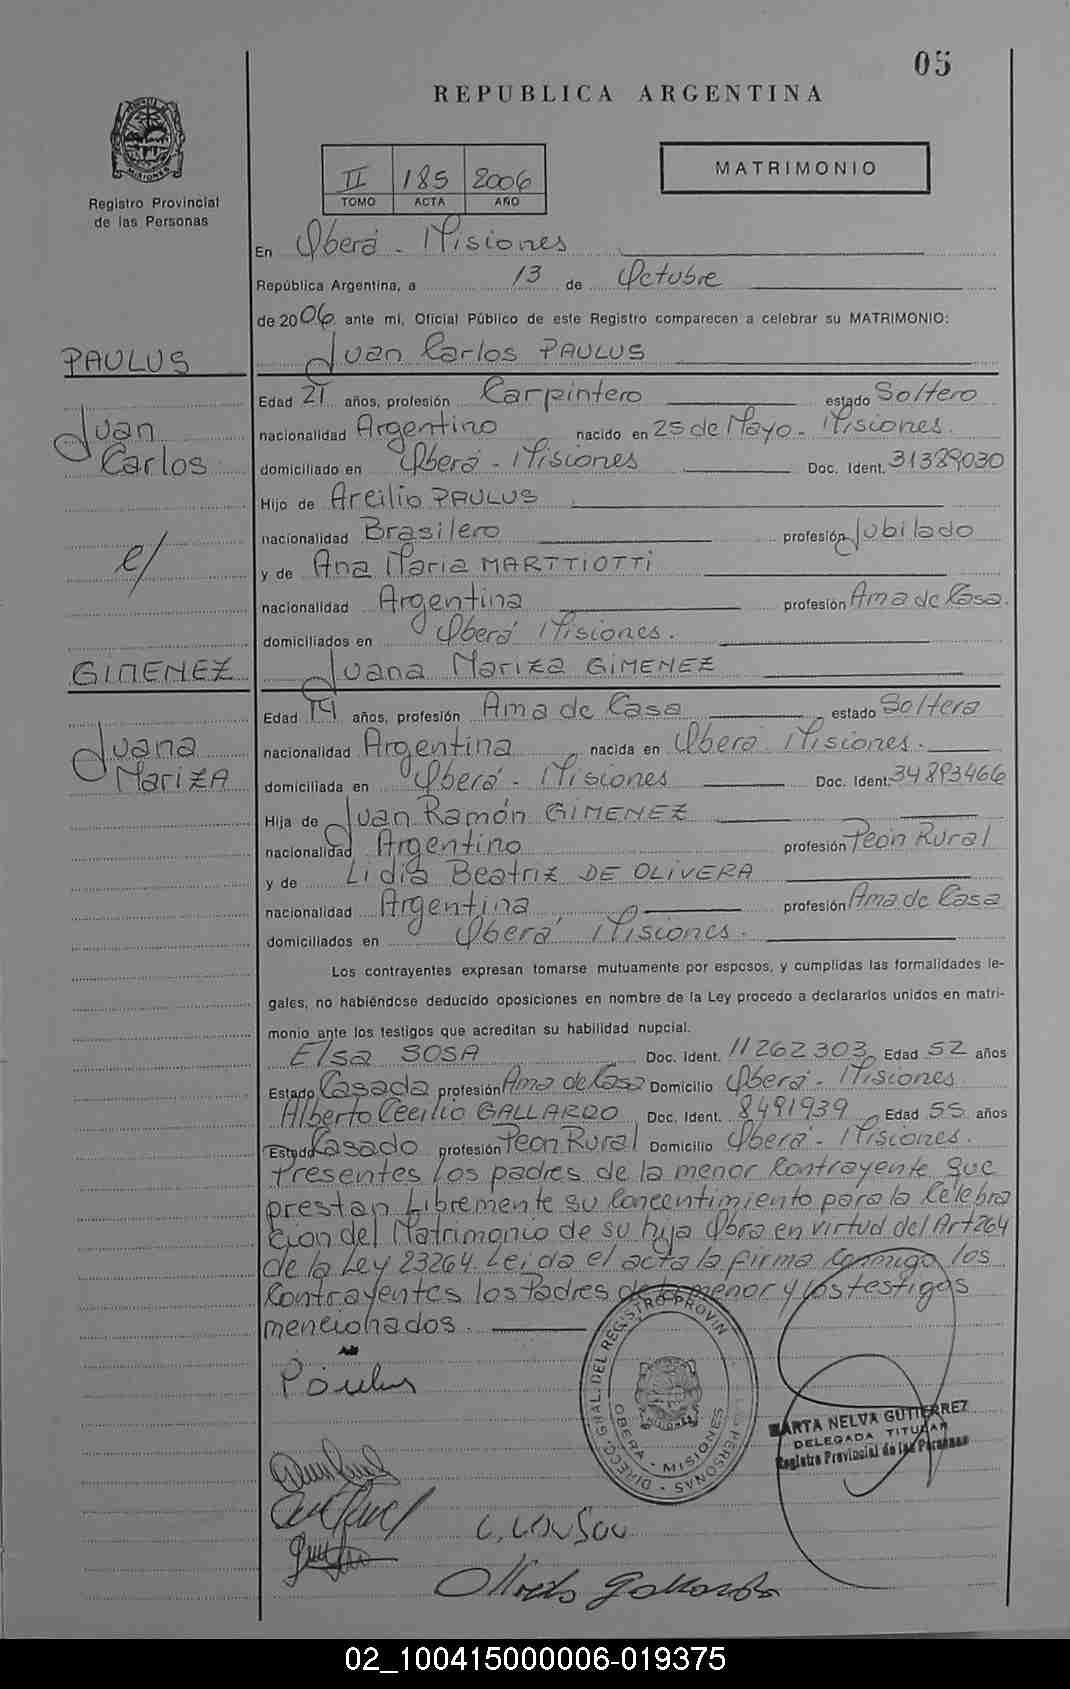 05
REPUBLICA ARGENTINA
MATRIMONIO
II 185 2006
TOMO ACTA AÑO
Registro Provincial
de las Personas
En Oberá - Misiones
República Argentina, a 13 de Octubre
de 2006 ante mi, Oficial Público de este Registro comparecen a celebrar su MATRIMONIO:
PAULUS
Juan Carlos PAULUS
Edad 21 años, profesión Carpintero estado Soltero
Juan
nacionalidad Argentino nacido en 25 de Mayo - Misiones.
Carlos
domiciliado en Oberá - Misiones Doc. Ident. 31389030
Hijo de Arcilio PAULUS
nacionalidad Brasilero profesión Jubilado
c/
y de Ana Maria MARTTIOTTi
nacionalidad Argentina profesión Ama de Casa.
domiciliados en Oberá Misiones.
GIMENEZ
Juana Mariza GIMENEZ
Edad 14 años, profesión Ama de Casa estado Soltera
Juana
nacionalidad Argentina nacida en Oberá Misiones.
MariZA
domiciliada en Oberá - Misiones Doc. Ident. 34893466
Hija de Juan Ramón GIMENEZ
nacionalidad Argentino profesión Peón Rural
y de Lidia Beatriz DE OLIVERA
nacionalidad Argentina profesión Ama de Casa
domiciliados en Oberá Misiones.
Los contrayentes expresan tomarse mutuamente por esposos, y cumplidas las formalidades le-
gales, no habiéndose deducido oposiciones en nombre de la Ley procedo a declararlos unidos en matri-
monio ante los testigos que acreditan su habilidad nupcial.
Elsa SOSA Doc. Ident. 11262303 Edad 52 años
Estado Casada profesión Ama de Casa Domicilio Oberá - Misiones
Alberto Cecilio GALLARDO Doc. Ident. 8491939 Edad 55 años
Estado Casado profesión Peon Rural Domicilio Oberá - Misiones.
Presentes los padres de la menor Contrayente que
prestan Libremente su Concentimiento para la Celebra
cion del Matrimonio de su hija Obra en virtud del Art 264
de la Ley 23264. Leida el acta la firma conmigo los
Contrayentes los Padres de la menor y los testigos
mencionados.
Paulus
DIRECC. GRAL. DEL REGISTRO PROVIN LAS PERSONAS
OBERA - MISIONES
MARTA NELVA GUTIERREZ
DELEGADA TITULAR
Registro Provincial de las Personas
Gallardo
02_100415000006-019375